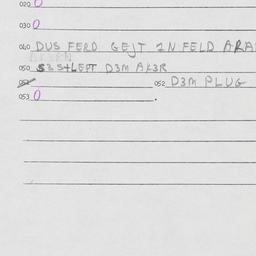 020 0
030 0
040 DUS FERD GEJT IN FELD ARA
050 S3 STLEFT D3M AK3R
052 052 D3M PLUG
053 0 .